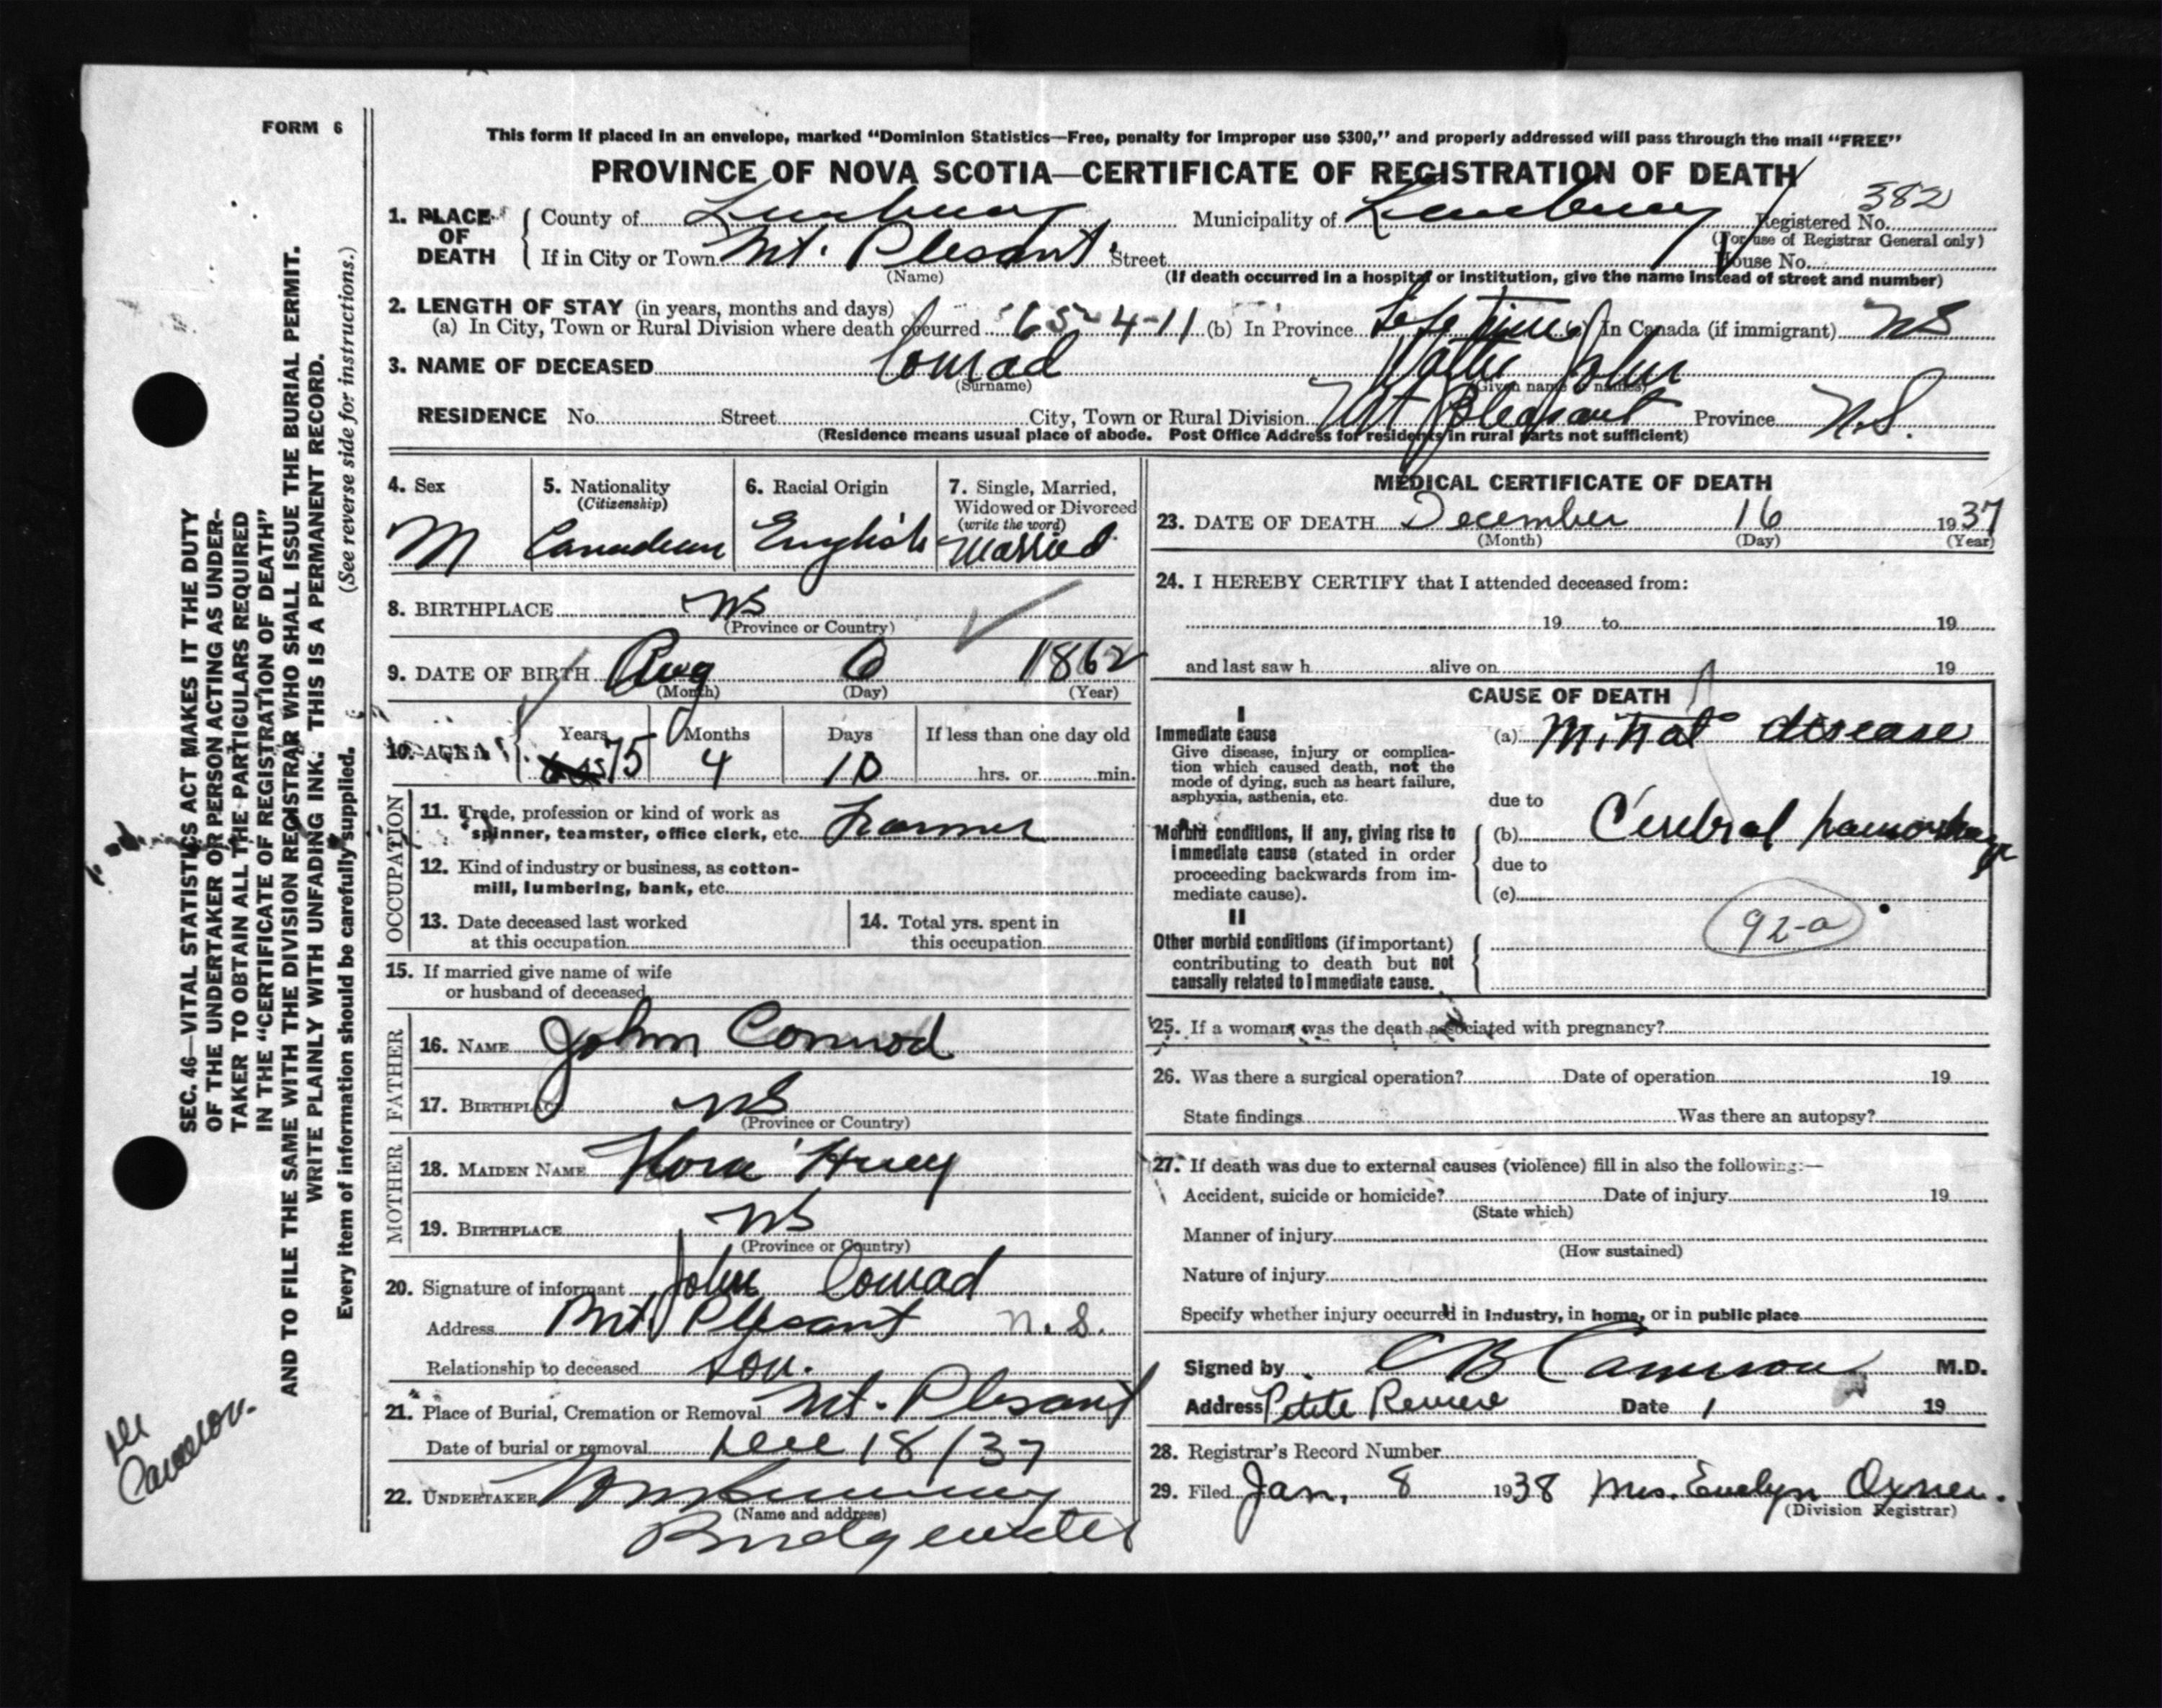 FORM 6
This form if placed in an envelope, marked "Dominion Statistics—Free, penalty for improper use $300," and properly addressed will pass through the mail "FREE"
PROVINCE OF NOVA SCOTIA—CERTIFICATE OF REGISTRATION OF DEATH
1. PLACE OF DEATH County of Lunenburg Municipality of Lunenburg Registered No. 382
(For use of Registrar General only)
If in City or Town Mt. Plesant Street House No.
(Name) (If death occurred in a hospital or institution, give the name instead of street and number)
2. LENGTH OF STAY (in years, months and days)
(a) In City, Town or Rural Division where death occurred 65-4-11 (b) In Province Life Time In Canada (if immigrant) NS
3. NAME OF DECEASED Conrad John
(Surname) (Given name or names)
RESIDENCE No. Street City, Town or Rural Division Mt Pleasant Province N.S.
(Residence means usual place of abode. Post Office Address for residents in rural parts not sufficient)
4. Sex M
5. Nationality (Citizenship) Canadian
6. Racial Origin English
7. Single, Married, Widowed or Divorced (write the word) Married
8. BIRTHPLACE NS
(Province or Country)
9. DATE OF BIRTH Aug 6 1862
(Month) (Day) (Year)
10. AGE in Years Months Days If less than one day old
75 4 10 hrs. or min.
OCCUPATION
11. Trade, profession or kind of work as spinner, teamster, office clerk, etc. Farmer
12. Kind of industry or business, as cotton-mill, lumbering, bank, etc.
13. Date deceased last worked at this occupation
14. Total yrs. spent in this occupation
15. If married give name of wife or husband of deceased
FATHER
16. NAME John Conrod
17. BIRTHPLACE NS
(Province or Country)
MOTHER
18. MAIDEN NAME Huey
19. BIRTHPLACE NS
(Province or Country)
20. Signature of informant John Conrad
Address Mt. Plesant N.S.
Relationship to deceased Son.
21. Place of Burial, Cremation or Removal Mt. Plesant
Date of burial or removal Dec 18/37
22. UNDERTAKER
(Name and address)
Bridgewater
MEDICAL CERTIFICATE OF DEATH
23. DATE OF DEATH December 16 1937
(Month) (Day) (Year)
24. I HEREBY CERTIFY that I attended deceased from:
19 to 19
and last saw h alive on 19
CAUSE OF DEATH
I
Immediate cause (a) Mitral disease
Give disease, injury or complication which caused death, not the mode of dying, such as heart failure, asphyxia, asthenia, etc.
due to
Morbid conditions, if any, giving rise to immediate cause (stated in order proceeding backwards from immediate cause).
(b) Cerebral hamorhage
due to
(c)
92-a
II
Other morbid conditions (if important) contributing to death but not causally related to immediate cause.
25. If a woman, was the death associated with pregnancy?
26. Was there a surgical operation? Date of operation 19
State findings Was there an autopsy?
27. If death was due to external causes (violence) fill in also the following:—
Accident, suicide or homicide? Date of injury 19
(State which)
Manner of injury
(How sustained)
Nature of injury
Specify whether injury occurred in industry, in home, or in public place
Signed by C B Cameron M.D.
Address Petite Reviere Date 19
28. Registrar's Record Number
29. Filed Jan. 8 1938 Mrs. Evelyn Oxner.
(Division Registrar)
SEC. 46—VITAL STATISTICS ACT MAKES IT THE DUTY
OF THE UNDERTAKER OR PERSON ACTING AS UNDER-
TAKER TO OBTAIN ALL THE PARTICULARS REQUIRED
IN THE "CERTIFICATE OF REGISTRATION OF DEATH"
AND TO FILE THE SAME WITH THE DIVISION REGISTRAR WHO SHALL ISSUE THE BURIAL PERMIT.
WRITE PLAINLY WITH UNFADING INK. THIS IS A PERMANENT RECORD.
Every item of information should be carefully supplied. (See reverse side for instructions.)
Cameron.